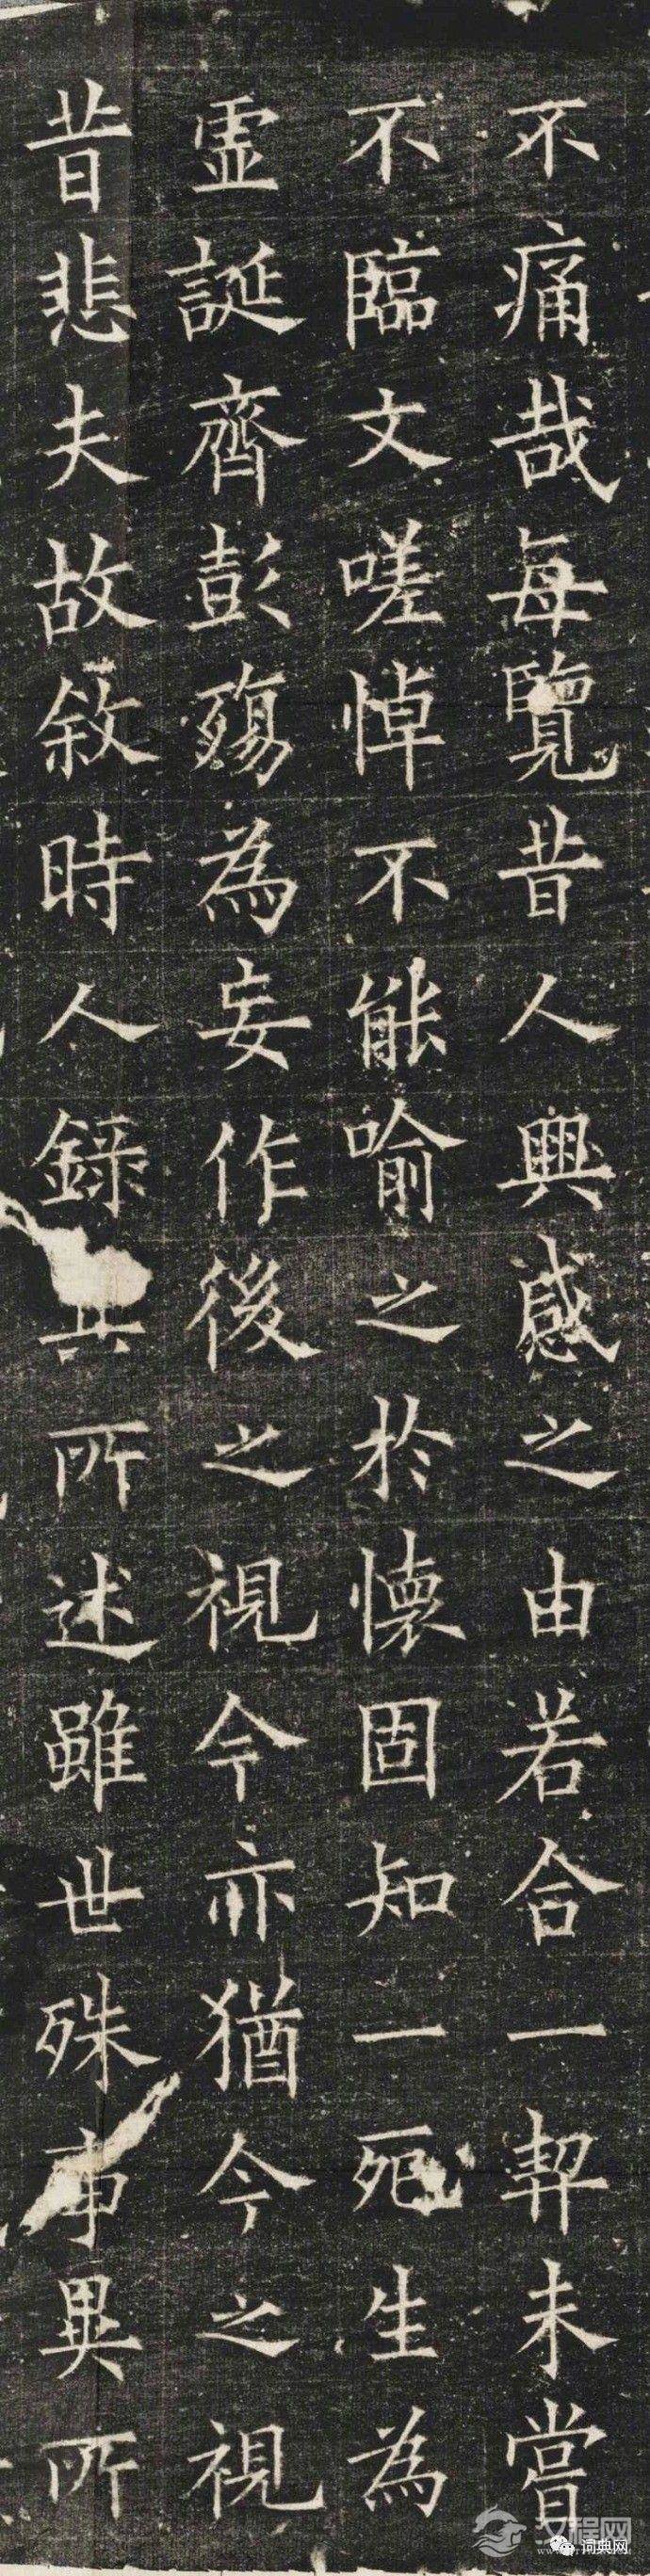 不痛哉每覽昔人興感之由若合一契未嘗
不臨文嗟悼不能喻之於懷固知一死生為
虛誕齊彭殤為妄作後之視今亦猶今之視
昔悲夫故敘時人錄其所述雖世殊事異所
汉程网
词典网